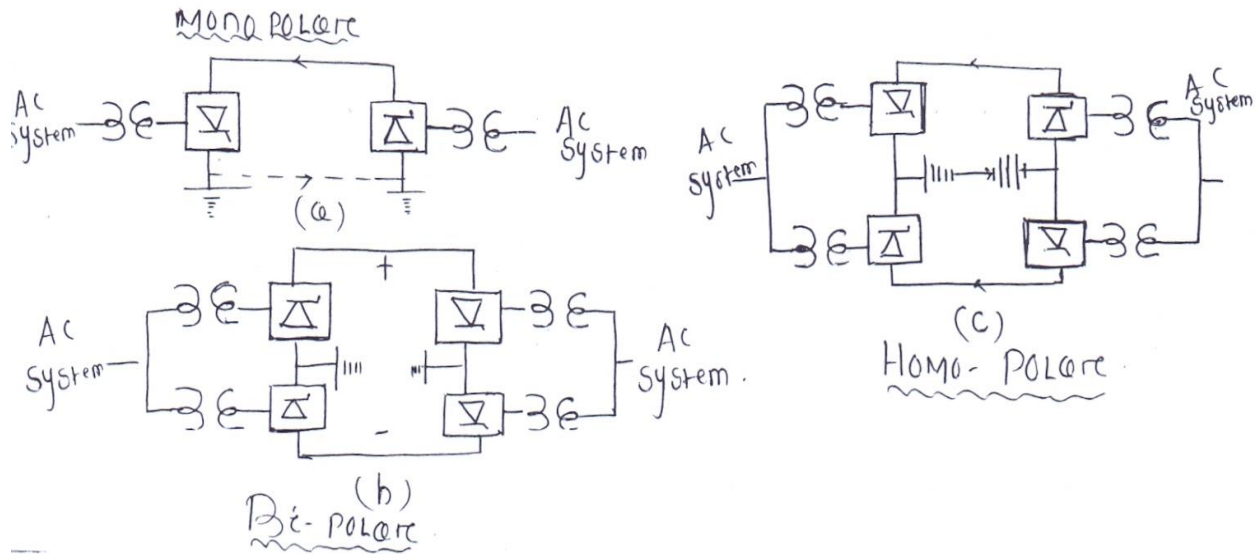 Mono Polare
AC
System
AC
System
(a)
AC
System
AC
System
(c)
Homo- Polare
AC
System
+
-
AC
System.
(b)
Bi- Polare